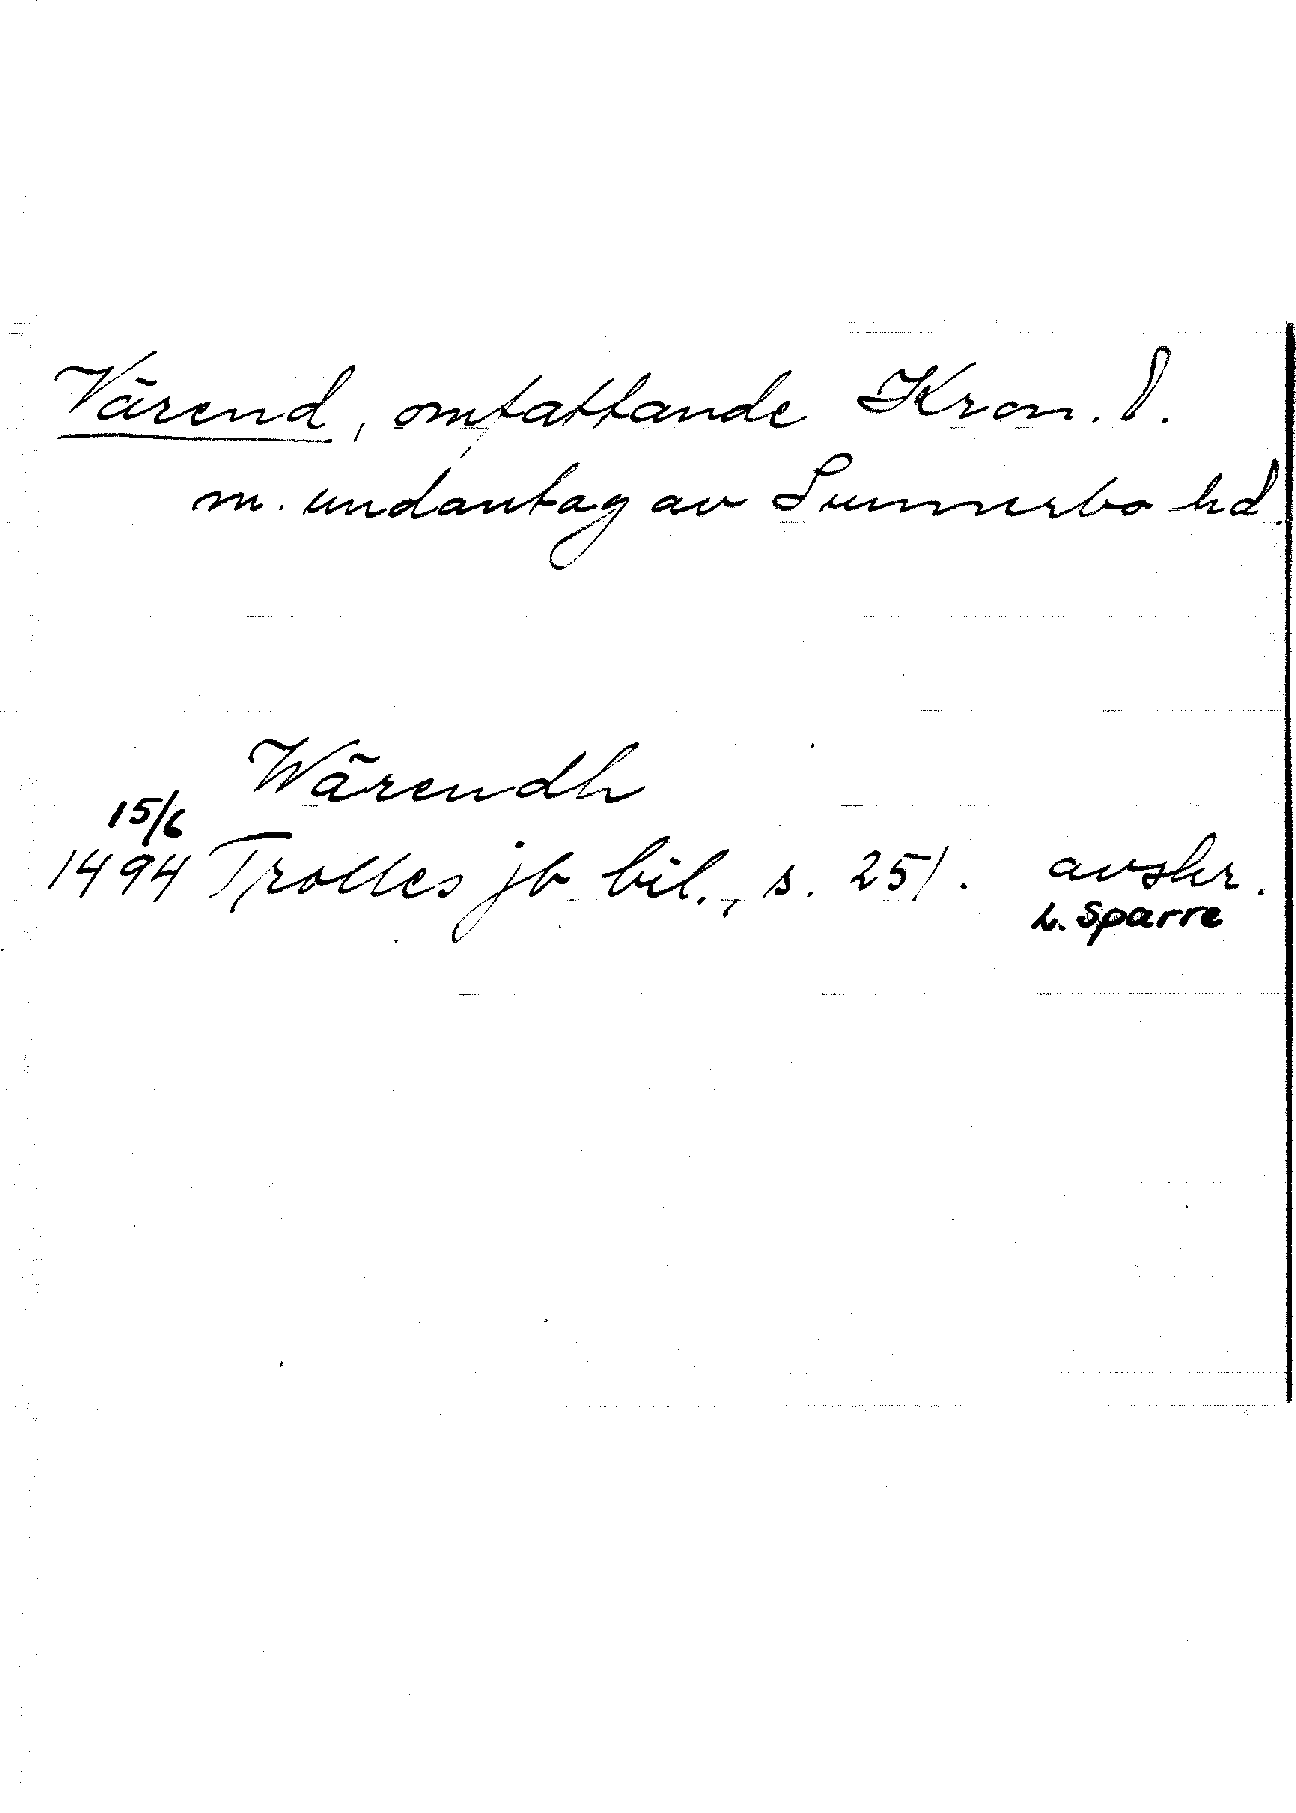 Värend, omfattande Kron. l.
m. undantag av Sunnerbo hd.
Wärendh
15/6
1494 Trolles jb bil., s. 251. avskr.
L. Sparre